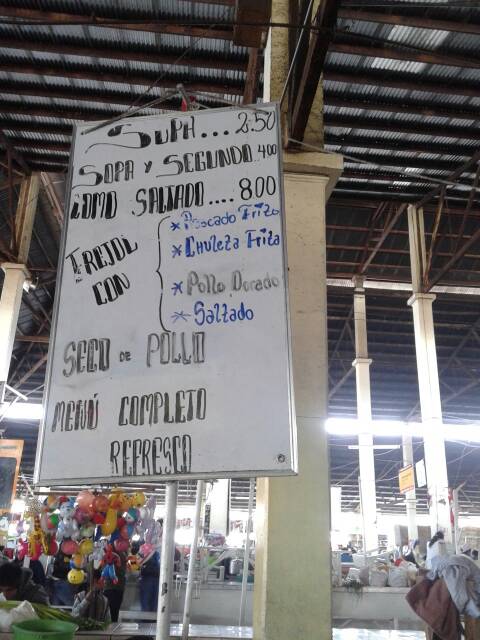 SOPA... 2.50
SOPA Y SEGUNDO. 4.00
LOMO SALTADO.... 8.00
FREJOL CON
* Pescado Frito
* Chuleta Frita
* Pollo Dorado
* Saltado
SECO DE POLLO
MENÚ COMPLETO
REFRESCO